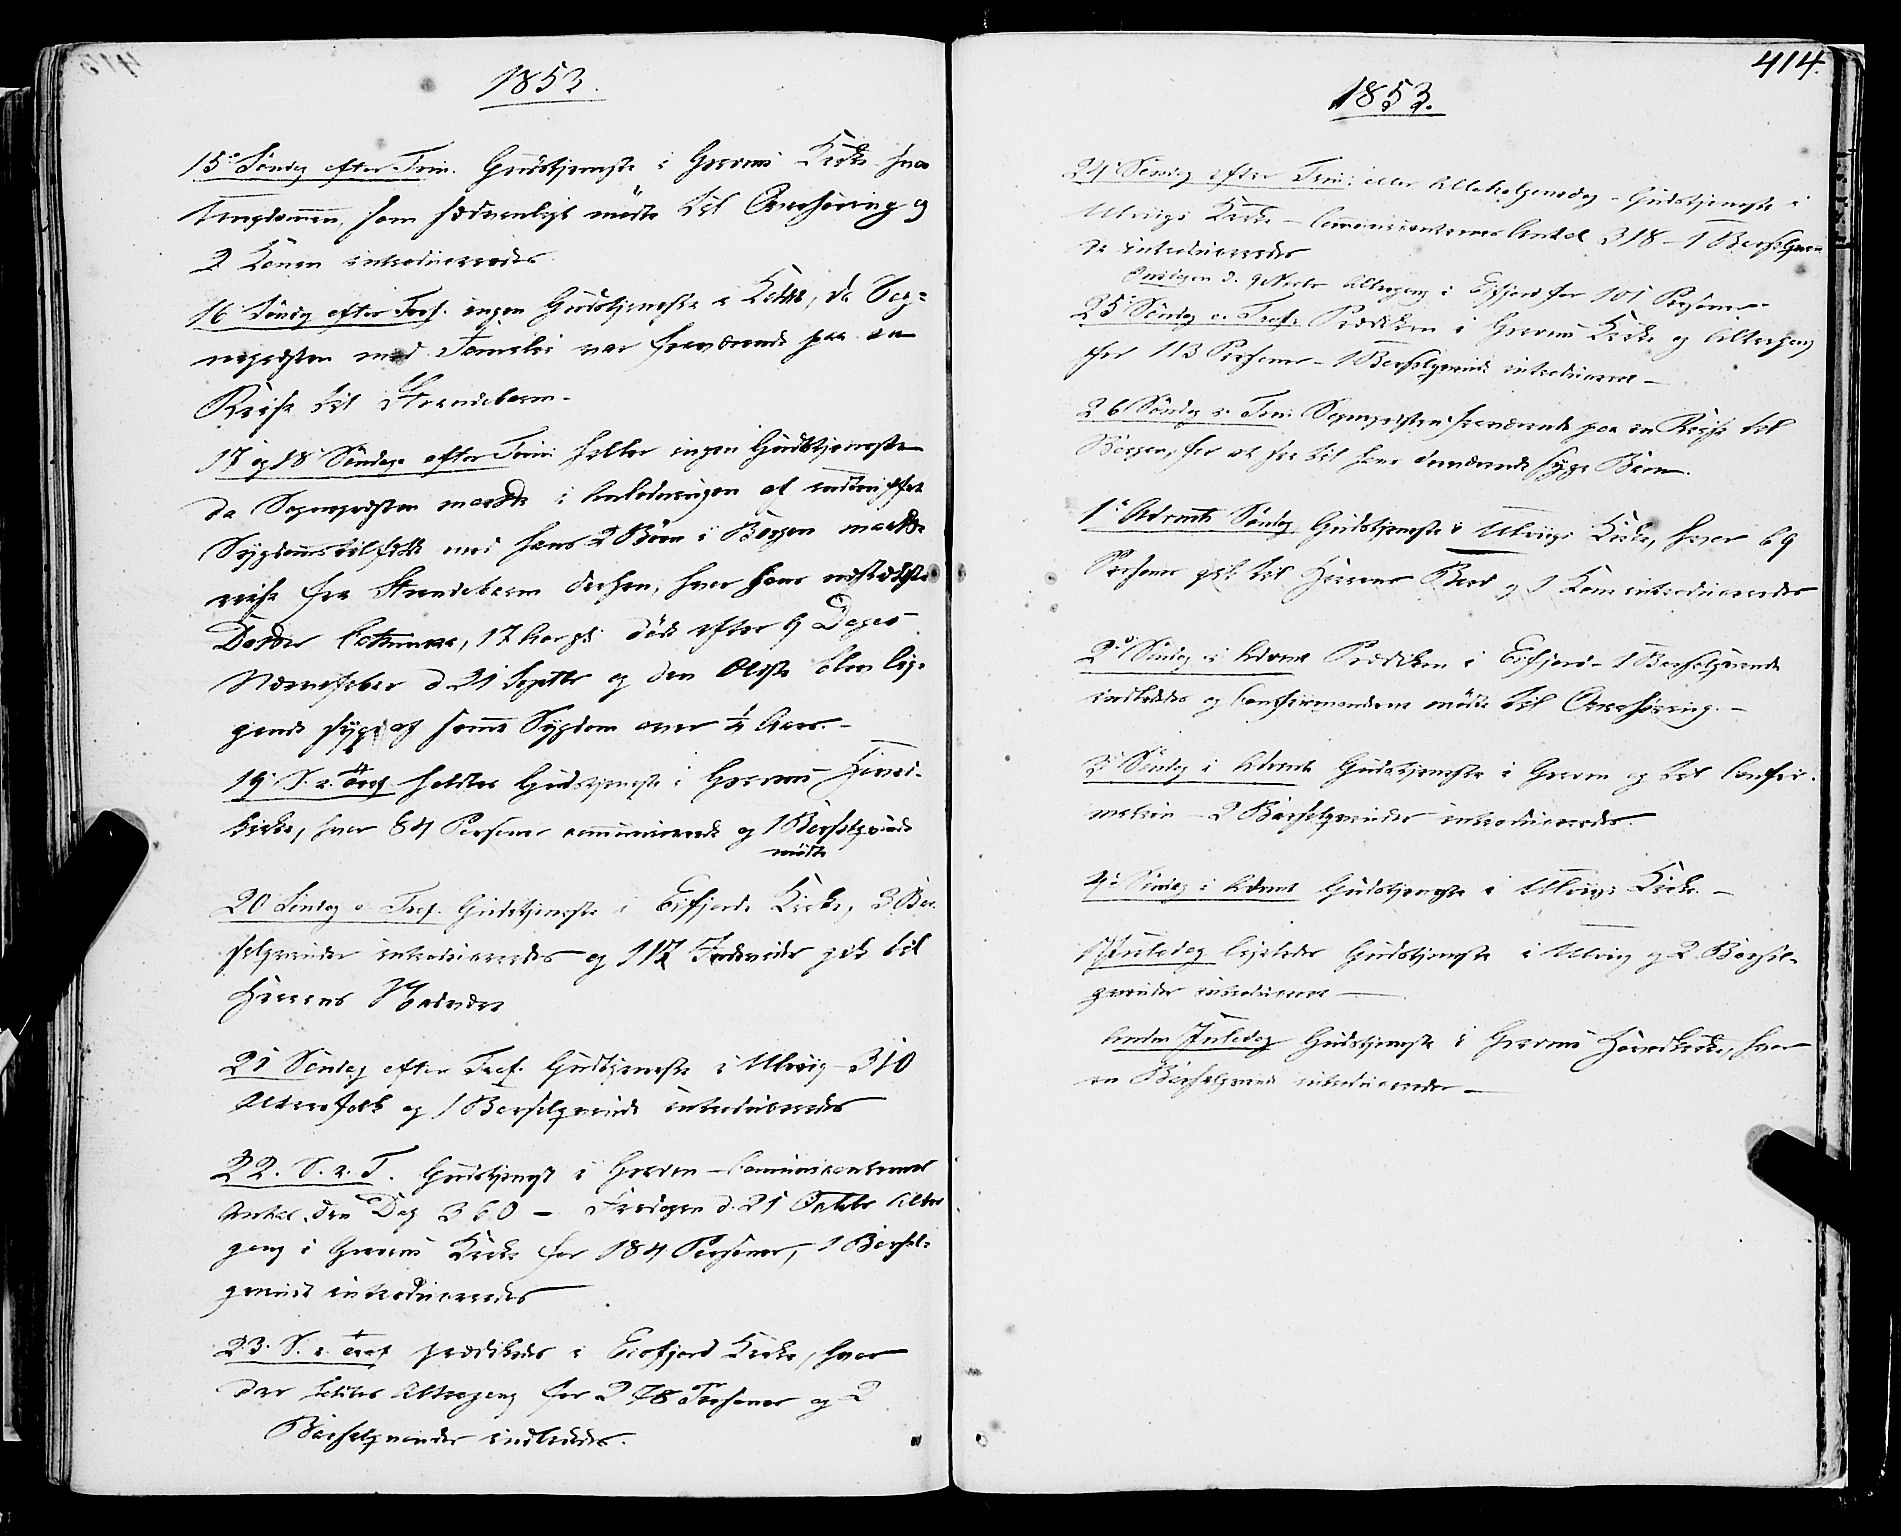 1853.
15de Søndag efter Trin. Gudstjeneste i Gravens Kirke hvor
Ungdommen som sædvanligt mødte til Overhøring og
2 Koner introduceredes.
16 Søndag efter Tref. ingen Gudstjeneste i Kaldet, da Sog=
nepræsten med Familie var fraværende paa en
Reise til Strandebarm.
17 og 18 Søndage efter Trin: heller ingen Gudstjeneste
da Sognepræsten maatte i Anledningen af indtruffet
Sygdomstilfælde med hans 2 Børn i Bergen maatte
reise fra Strandebarm derhen, hvor hans næstældste
Datter 17 Aar gl: døde efter 9 Dages
Nervefeber d 21 Septbr og den Ældste blev lig=
gende syg af samme Sygdom over ¼ Aar.
19 S. e. Tref holdtes Gudstjeneste i Gravens Hoved=
kirke, hvor 84 Personer communicerede og 1 Barselqvinde
mødte
20 Søndag e. Tref. Gudstjeneste i Eifjords Kirke, 3 Bar=
selqvinder introduceredes og 112 Individer gik til
Herrens Nadver
21 Søndag efter Tref. Gudstjeneste i Ulvig 310
Altersfolk og 1 Barselqvinde introduceredes
22. S. e. T. Gudstjenest i Graven – Communicanternes
Antal den Dag 360 – Fredagen d. 21 Octobr Alter
gang i Gravens Kirke for 184 Personer, 1 Barsel=
qvinde introduceredes
23. S. e. Tref prædikedes i Eiefjord Kirke, hvor
der holdtes Altergang for 278 Personer og 2
Barselqvinder indlededes.
414.
1853.
24 Søndag efter Trin: eller Allehelgensdag – Gudstjeneste i
Ulvigs Kirke – Communicanternes Antal 318 – 1 Barselqvin
de introduceredes
Onsdagen d. 9 Novbr Altergang i Eifjord for 101 Personer
25 Søndag e. Tref. Prædiken i Gravens Kirke og Altergang
for 113 Personer – 1 Barselqvinde introduceret –
26 Søndag e. Trin: Sognepræsten fraværende paa en Reise til
Bergen, for at see til hans derværende syge Børn.
1ste Advents Søndag Gudstjeneste i Ulvigs Kirke, hvor 69
Personer gik til Herrens Bord og 1 Kone introduceredes
2den Søndag i Advent Prædiken i Eifjord – 1 Barselqvinde
indlededes og Confirmanderne mødte til Overhøring. –
3die Søndag i Advent Gudstjeneste i Graven og til Confir=
mation – 2 Barselqvinder introduceredes.
4de Søndag i Advent Gudstjeneste i Ulvigs Kirke. –
1 Juledag ligeledes Gudstjeneste i Ulvig og 2 Barsel=
qvinder introduceret –
Anden Juledag Gudstjeneste i Gravens Hovedkirke, hvor
en Barselqvinde introduceredes –